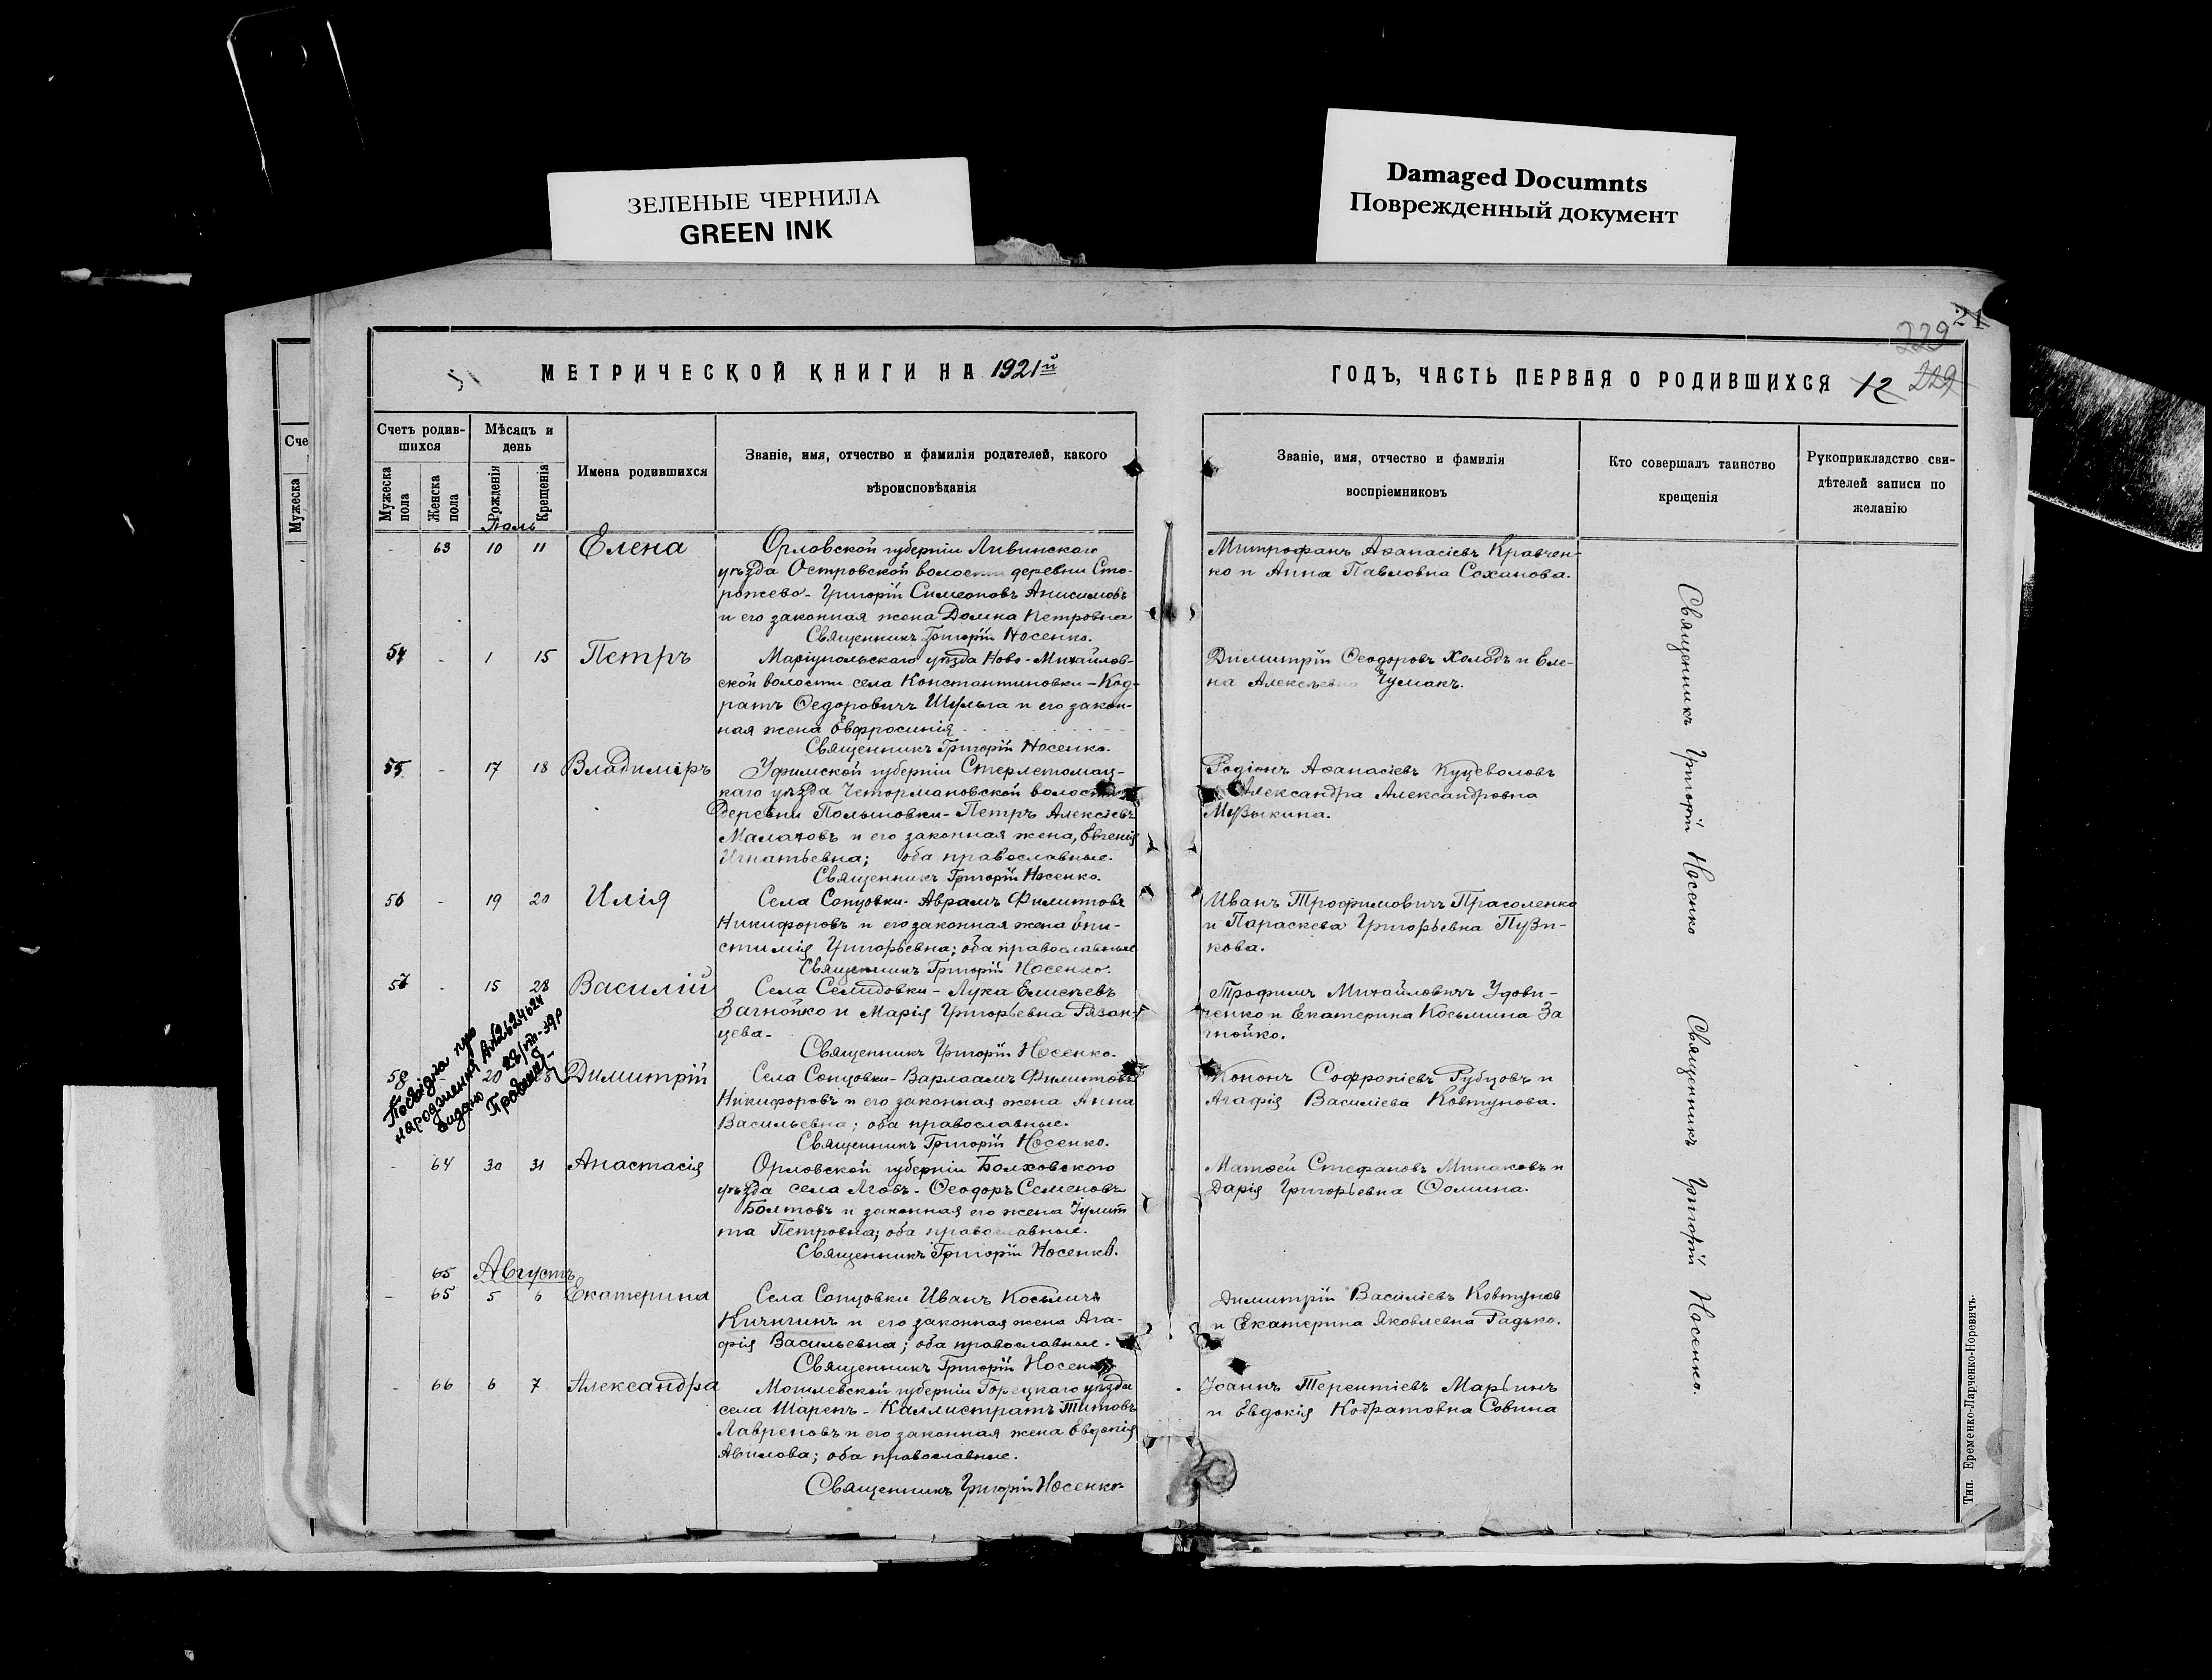 ЗЕЛЕНЫЕ ЧЕРНИЛА
GREEN INK
Damaged Documnts
Поврежденный документ
21
229
МЕТРИЧЕСКОЙ КНИГИ НА 1921й
ГОДЪ, ЧАСТЬ ПЕРВАЯ О РОДИВШИХСЯ 12 229
Сче
Мужеска
Счетъ родив-
шихся
Мѣсяцъ и
день
Имена родившихся
Званіе, имя, отчество и фамилія родителей, какого
вѣроисповѣданія
Званіе, имя, отчество и фамилія
воспріемниковъ
Кто совершалъ таинство
крещенія
Рукоприкладство сви-
дѣтелей записи по
желанію
Мужеска
пола
Женска
пола
Рожденія
Крещенія
Іюль
- 63 10 11 Елена
Орловской губерніи Ливинскаго
уѣзда Островской волости деревни Сто-
рожево - Григорій Симеоновъ Анисимовъ
и его законная жена Домна Петровна
Священникъ Григорій Носенко.
Митрофанъ Аѳанасіевъ Кравчен-
ко и Анна Павловна Соханова.
54 - 1 15 Петръ
Маріупольскаго уѣзда Ново-Михайлов-
ской волости села Константиновки - Код-
ратъ Ѳедоровичъ Шульга и его закон-
ная жена Евфросинія
Священникъ Григорій Носенко.
Димитрій Ѳеодоровъ Холодъ и Еле-
на Алексѣевна Чумакъ.
55 - 17 18 Владиміръ
Уфимской губерніи Стерлетомац-
каго уѣзда Четормановской волости
деревни Полыновки - Петръ Алексіевъ
Малаховъ и его законная жена, Евгенія
Игнатьевна; оба православные.
Священникъ Григорій Носенко.
Родіонъ Аѳанасіевъ Куцеволовъ
Александра Александровна
Музыкина.
56 - 19 20 Илія
Села Сонцовки - Аврамъ Филитовъ
Никифоровъ и его законная жена Епи-
стимія Григорьевна; оба православные
Священникъ Григорій Носенко.
Иванъ Трофимовичъ Прасоленко
и Параскева Григорьевна Пузи-
кова.
57 - 15 28 Василій
Села Селидовки - Лука Елисѣевъ
Загнойко и Марія Григорьевна Рязан-
цева -
Священникъ Григорій Носенко.
Трофимъ Михайловичъ Удови-
ченко и Екатерина Косьмина За
гнойко.
58 20 25 Димитрій
Посвідка про
народження
видано
Села Сонцовки - Варлаамъ Филитовъ
Никифоровъ и его законная жена Анна
Васильевна; оба православные.
Священникъ Григорій Носенко.
Кононъ Софроніевъ Рубцовъ и
Агафія Василіева Ковтунова.
- 64 30 31 Анастасія
Орловской губерніи Болховского
уѣзда села Лговъ - Ѳеодоръ Семеновъ
Болтовъ и законная его жена Іулит
та Петровна; оба православные.
Священникъ Григорій Носенко.
Матѳей Стефановъ Минаковъ и
Дарія Григорьевна Ѳомина.
65 Августъ
- 65 5 6 Екатерина
Села Сонцовки Иванъ Косьмичъ
Кичигинъ и его законная жена Ага-
фія Васильевна; оба православные.
Священникъ Григорій Носенко
Димитрій Василіевъ Ковтунов
и Екатерина Яковлевна Радько.
- 66 6 7 Александра
Могилевской губерніи Горецкаго уѣзда
села Шарепъ - Каллистратъ Титовъ
Лавреновъ и его законная жена Евдокія
Авилова; оба православные.
Священникъ Григорій Носенко
Іоаннъ Терентіевъ Марьинъ
и Евдокія Кодратовна Совина
Священникъ Григорій Носенко
Священникъ Григорій Носенко.
Тип. Еременко-Ларченко-Норевичъ.